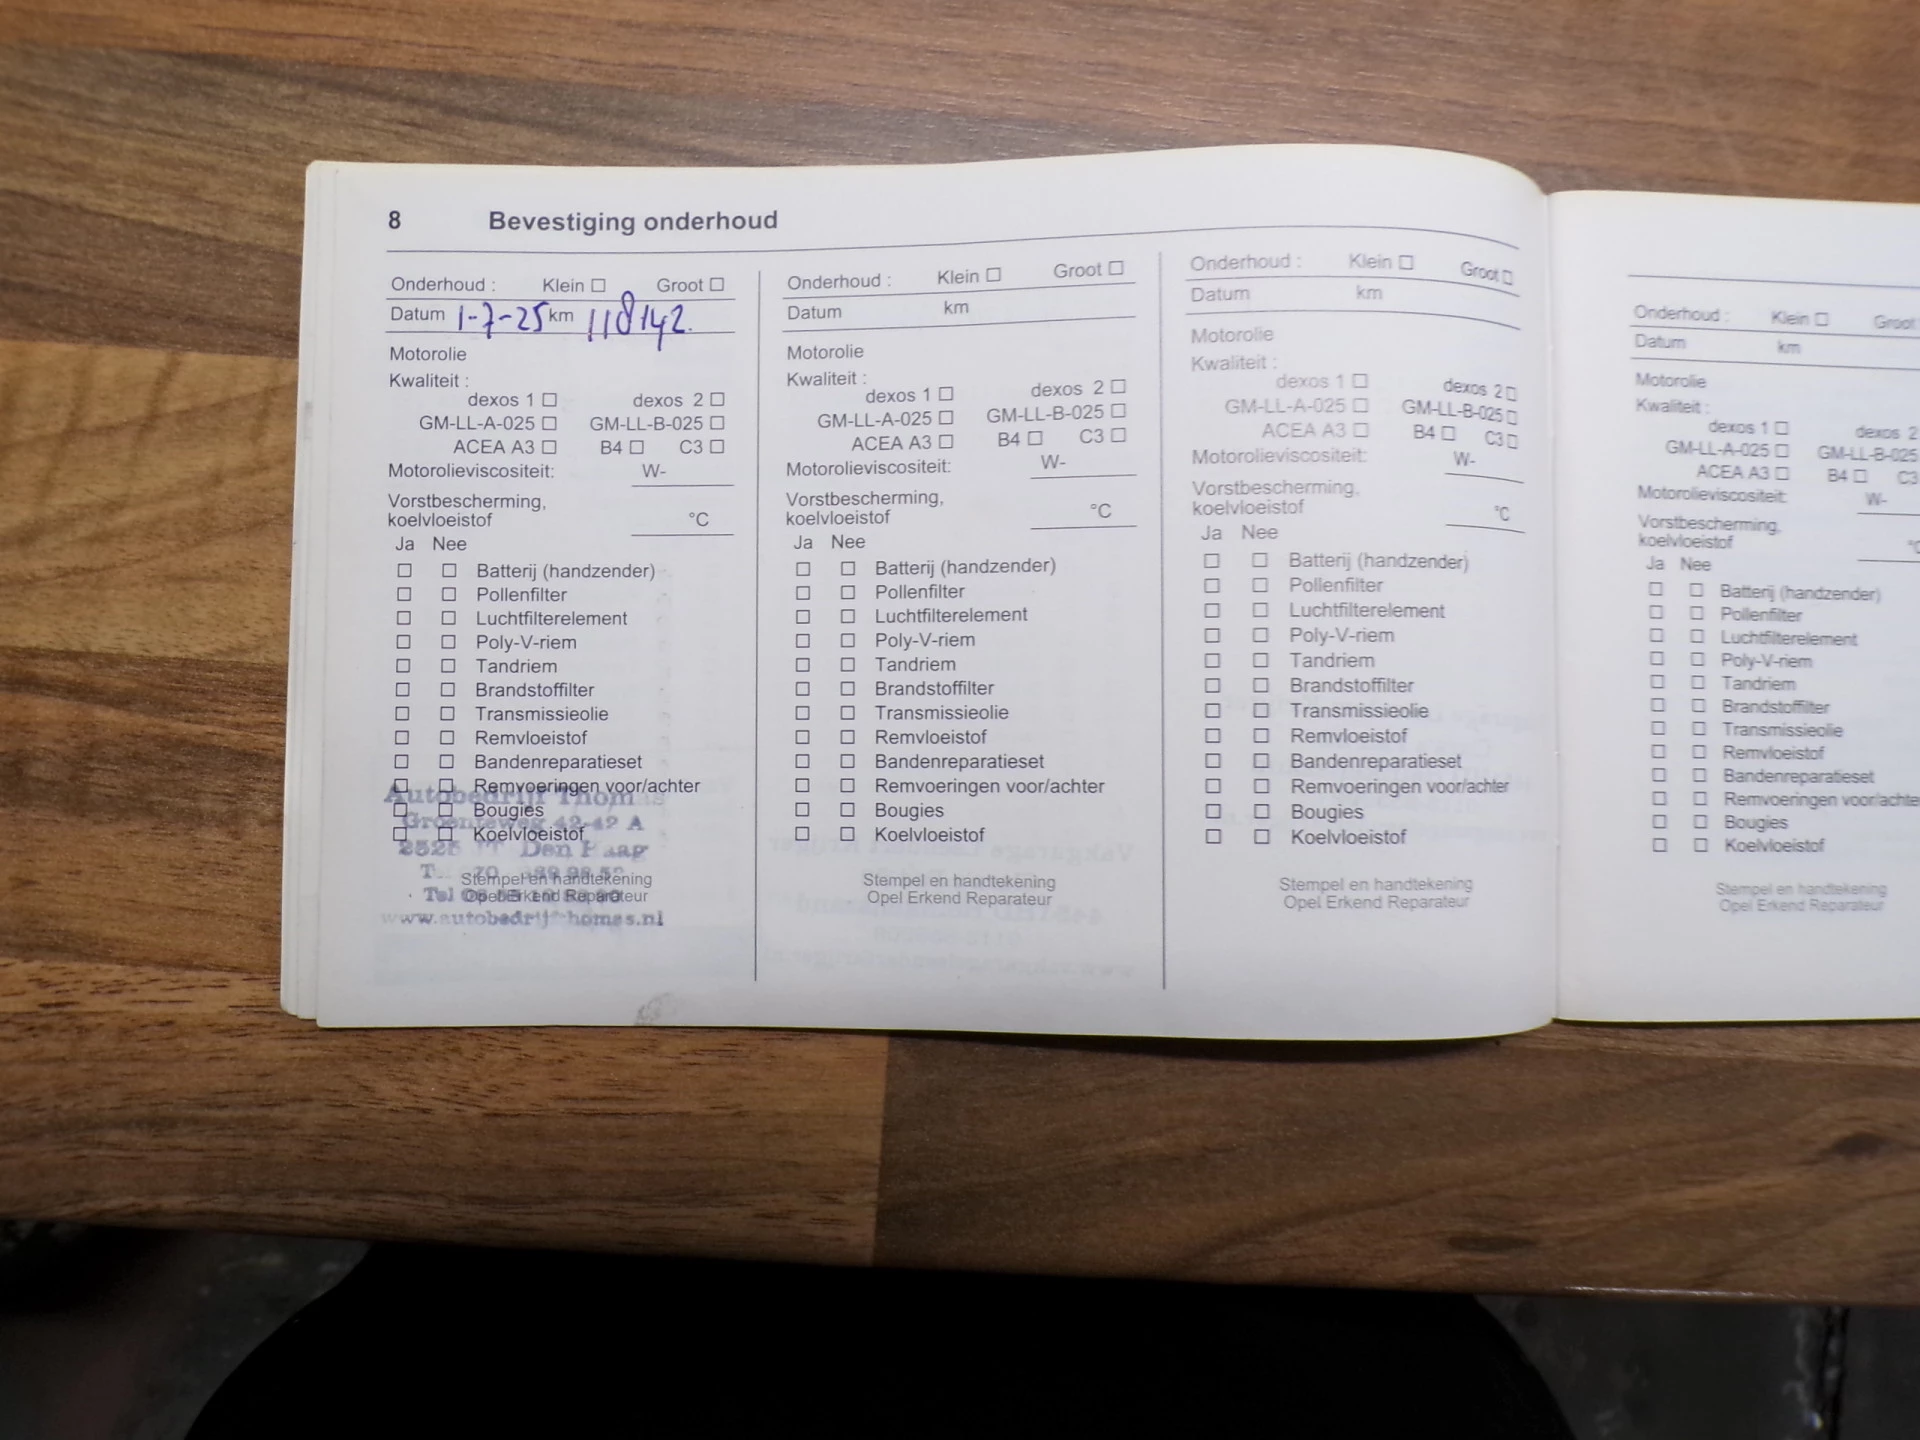 8 Bevestiging onderhoud
Onderhoud : Klein ☐ Groot ☐
Datum 1-7-25 km 118142.
Motorolie
Kwaliteit :
dexos 1 ☐ dexos 2 ☐
GM-LL-A-025 ☐ GM-LL-B-025 ☐
ACEA A3 ☐ B4 ☐ C3 ☐
Motorolieviscositeit: W-
Vorstbescherming,
koelvloeistof °C
Ja Nee
☐ ☐ Batterij (handzender)
☐ ☐ Pollenfilter
☐ ☐ Luchtfilterelement
☐ ☐ Poly-V-riem
☐ ☐ Tandriem
☐ ☐ Brandstoffilter
☐ ☐ Transmissieolie
☐ ☐ Remvloeistof
☐ ☐ Bandenreparatieset
☐ ☐ Remvoeringen voor/achter
☐ ☐ Bougies
☐ ☐ Koelvloeistof
Stempel en handtekening
Opel Erkend Reparateur
Autobedrijf Thomas
Groenteweg 42-42 A
2525 Den Haag
Tel
www.autobedrijfthomas.nl
Onderhoud : Klein ☐ Groot ☐
Datum km
Motorolie
Kwaliteit :
dexos 1 ☐ dexos 2 ☐
GM-LL-A-025 ☐ GM-LL-B-025 ☐
ACEA A3 ☐ B4 ☐ C3 ☐
Motorolieviscositeit: W-
Vorstbescherming,
koelvloeistof °C
Ja Nee
☐ ☐ Batterij (handzender)
☐ ☐ Pollenfilter
☐ ☐ Luchtfilterelement
☐ ☐ Poly-V-riem
☐ ☐ Tandriem
☐ ☐ Brandstoffilter
☐ ☐ Transmissieolie
☐ ☐ Remvloeistof
☐ ☐ Bandenreparatieset
☐ ☐ Remvoeringen voor/achter
☐ ☐ Bougies
☐ ☐ Koelvloeistof
Stempel en handtekening
Opel Erkend Reparateur
Onderhoud : Klein ☐ Groot ☐
Datum km
Motorolie
Kwaliteit :
dexos 1 ☐ dexos 2 ☐
GM-LL-A-025 ☐ GM-LL-B-025 ☐
ACEA A3 ☐ B4 ☐ C3 ☐
Motorolieviscositeit: W-
Vorstbescherming,
koelvloeistof °C
Ja Nee
☐ ☐ Batterij (handzender)
☐ ☐ Pollenfilter
☐ ☐ Luchtfilterelement
☐ ☐ Poly-V-riem
☐ ☐ Tandriem
☐ ☐ Brandstoffilter
☐ ☐ Transmissieolie
☐ ☐ Remvloeistof
☐ ☐ Bandenreparatieset
☐ ☐ Remvoeringen voor/achter
☐ ☐ Bougies
☐ ☐ Koelvloeistof
Stempel en handtekening
Opel Erkend Reparateur
Onderhoud : Klein ☐ Groot
Datum km
Motorolie
Kwaliteit :
dexos 1 ☐ dexos 2
GM-LL-A-025 ☐ GM-LL-B-025
ACEA A3 ☐ B4 ☐ C3
Motorolieviscositeit: W-
Vorstbescherming,
koelvloeistof °C
Ja Nee
☐ ☐ Batterij (handzender)
☐ ☐ Pollenfilter
☐ ☐ Luchtfilterelement
☐ ☐ Poly-V-riem
☐ ☐ Tandriem
☐ ☐ Brandstoffilter
☐ ☐ Transmissieolie
☐ ☐ Remvloeistof
☐ ☐ Bandenreparatieset
☐ ☐ Remvoeringen voor/achte
☐ ☐ Bougies
☐ ☐ Koelvloeistof
Stempel en handtekening
Opel Erkend Reparateur